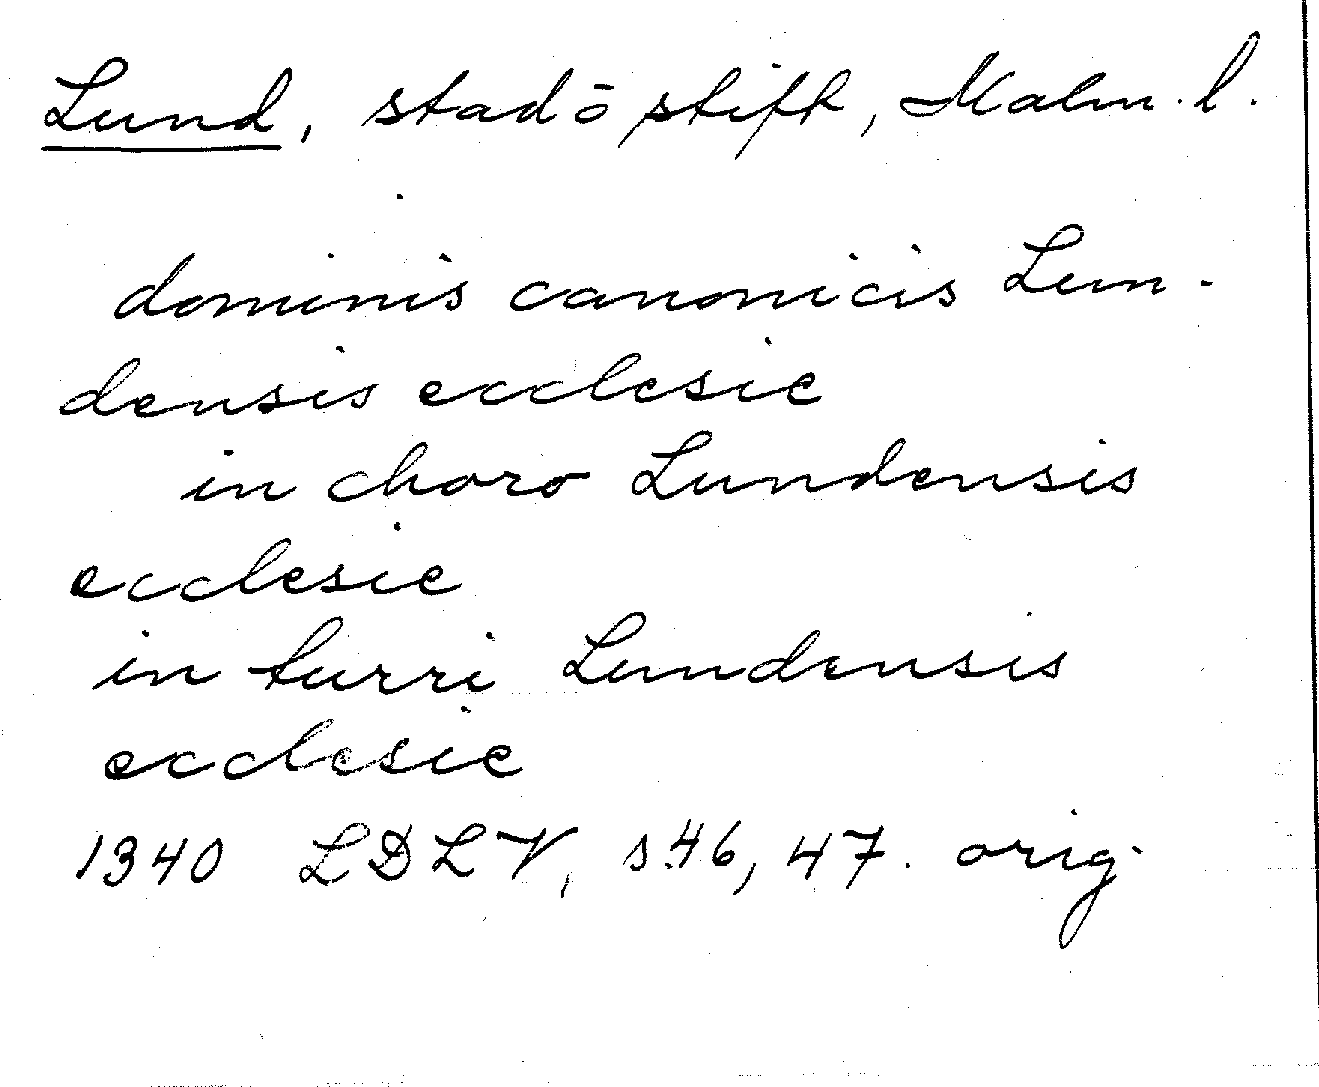 Lund, stad ō stift, Malm. l.
dominis canonicis Lun-
densis ecclesie
in choro Lundensis
ecclesie
in turri Lundensis
ecclesie
1340 LDLV, s.46, 47. orig.